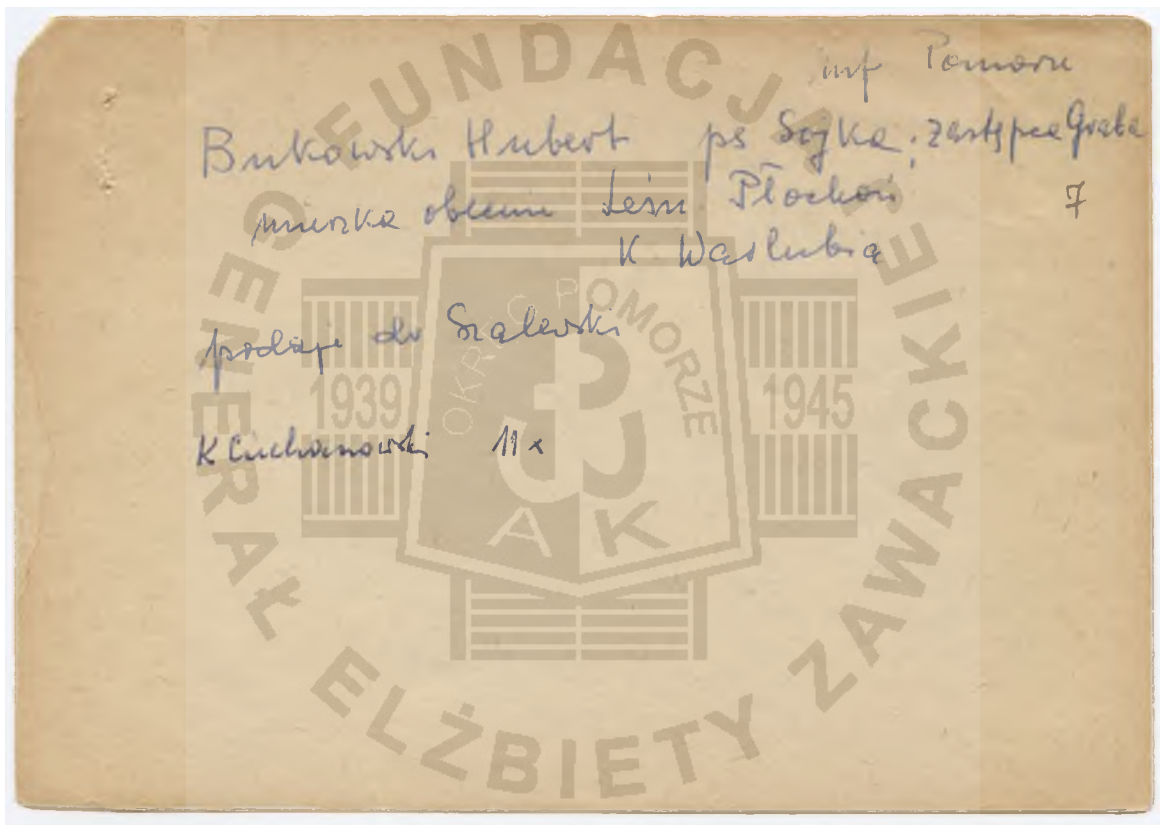 inf Pomorze
Bukowski Hubert ps Sojka, zastępca Graba
mieszka obecnie Leśn. Płochoń 7
K. Warlubia
podaje dr Szalewski
K Ciechanowski 11 x
FUNDACJA
GENERAŁ ELŻBIETY ZAWACKIEJ
OKRĘG POMORZE
1939
1945
AK